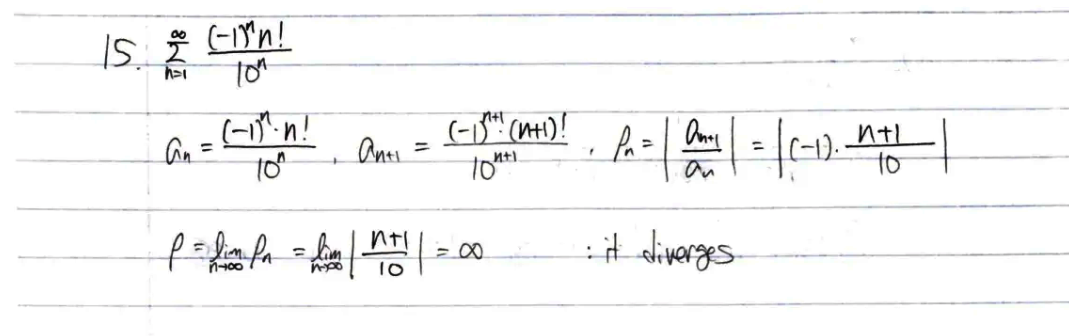 15. \sum_{n=1}^{\infty} \frac{(-1)^n n!}{10^n}
a_n = \frac{(-1)^n \cdot n!}{10^n} , a_{n+1} = \frac{(-1)^{n+1} \cdot (n+1)!}{10^{n+1}} , \rho_n = \left| \frac{a_{n+1}}{a_n} \right| = \left| (-1) \cdot \frac{n+1}{10} \right|
\rho = \lim_{n \to \infty} \rho_n = \lim_{n \to \infty} \left| \frac{n+1}{10} \right| = \infty : it diverges